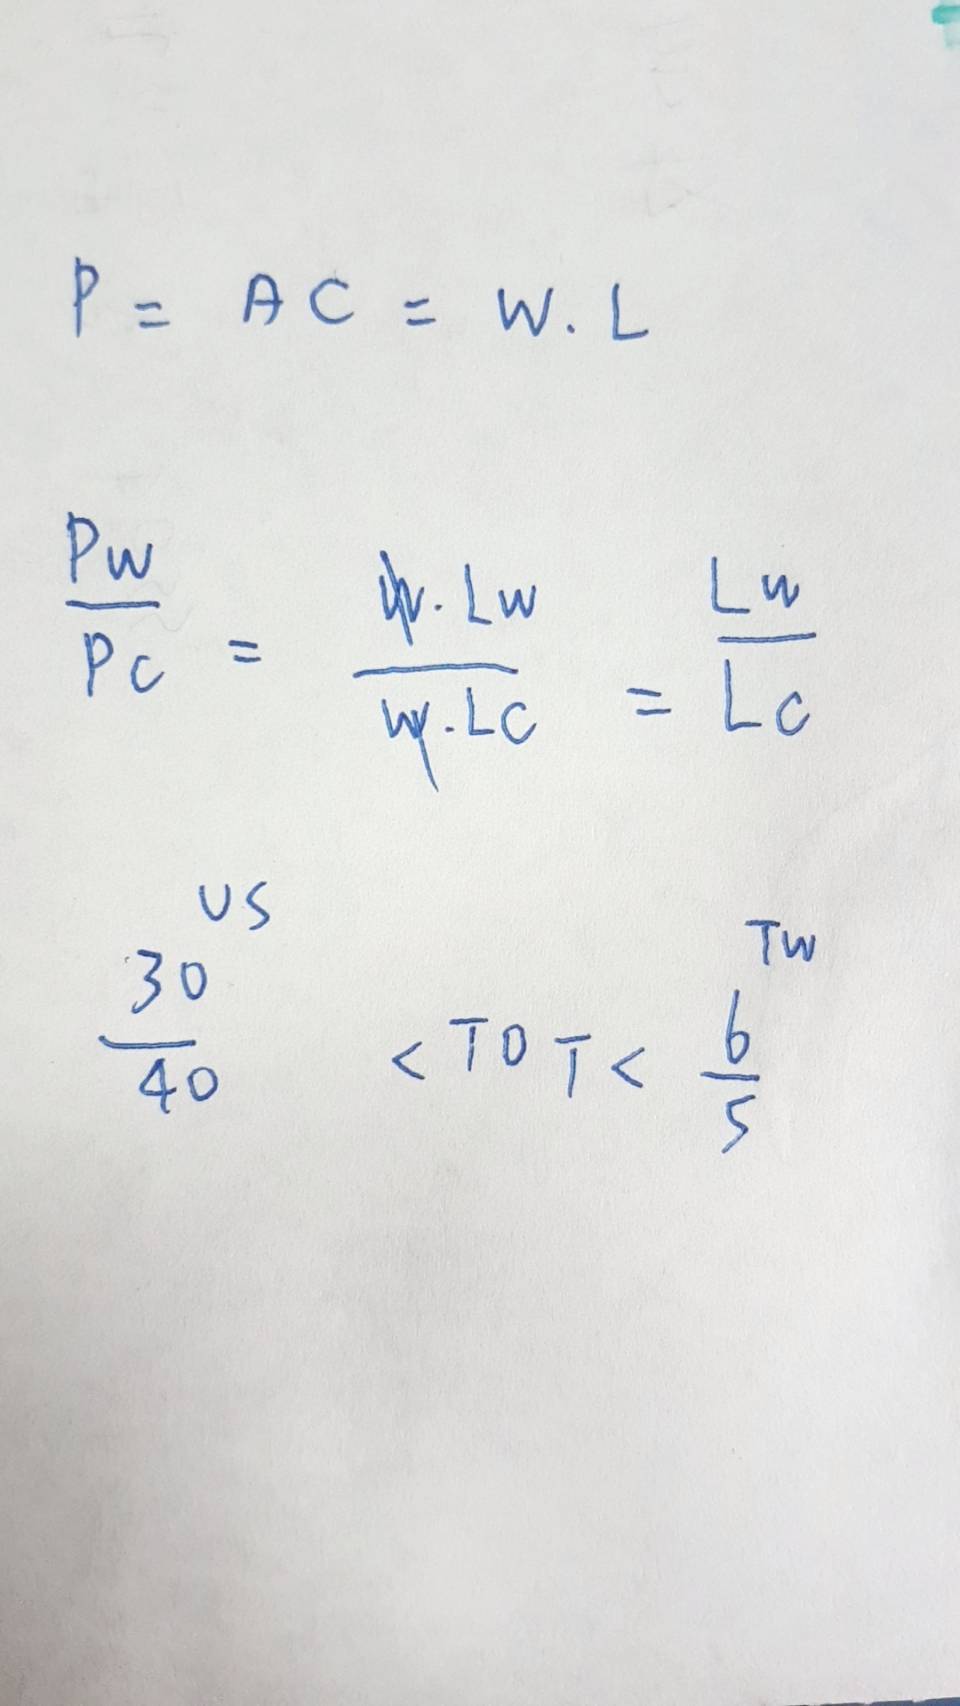 P = AC = W.L
Pw/Pc = W.Lw/W.Lc = Lw/Lc
30/40 US < TOT < 6/5 TW